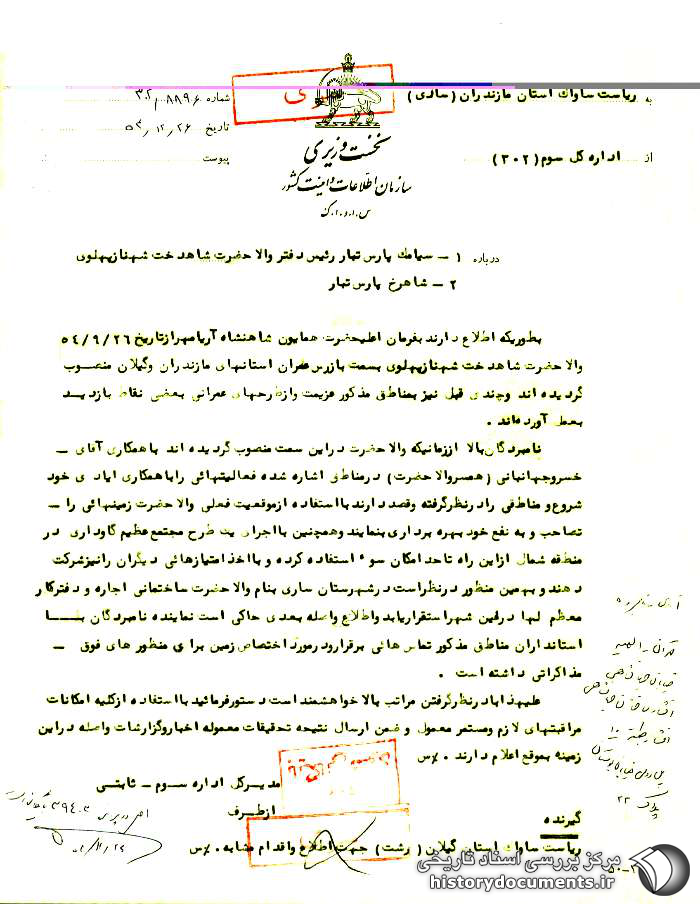 به ریاست ساواک استان مازندران (ساری)
شماره ۳۰۲/۸۸۹۶
تاریخ ۵۴/۱۲/۲۶
از اداره کل سوم (۳۰۲)
پیوست
نخست وزیری
سازمان اطلاعات و امنیت کشور
س.ا.و.ا.ک
درباره ۱ - سیامک پارس تبار رئیس دفتر والا حضرت شاهدخت شهناز پهلوی
۲ - شاهرخ پارس تبار
بطوریکه اطلاع دارند بفرمان اعلیحضرت همایون شاهنشاه آریامهر از تاریخ ۵۴/۹/۲۶
والا حضرت شاهدخت شهناز پهلوی بسمت بازرس عمران استانهای مازندران و گیلان منصوب
گردیده اند و چندی قبل نیز بمناطق مذکور عزیمت و از طرحهای عمرانی بعضی نقاط بازدید
بعمل آورده‌اند .
نامبردگان بالا از زمانیکه والا حضرت در این سمت منصوب گردیده اند با همکاری آقای -
خسرو جهانبانی (همسر والا حضرت) در مناطق اشاره شده فعالیتهائی را با همکاری ایادی خود
شروع و مناطقی را در نظر گرفته و قصد دارند با استفاده از موقعیت فعلی والا حضرت زمینهائی را -
تصاحب و به نفع خود بهره برداری بنمایند و همچنین با اجرای یک طرح مجتمع عظیم گاوداری در
منطقه شمال از این راه تا حد امکان سوء استفاده کرده و با اخذ امتیازهائی دیگران را نیز شرکت
دهند و بهمین منظور در نظر است در شهرستان ساری بنام والا حضرت ساختمانی اجاره و دفتر کار
معظم لها در همین شهر استقرار یابد و اطلاع واصله بعدی حاکی است نماینده نامبردگان با
استانداران مناطق مذکور تماس هائی برقرار و در مورد اختصاص زمین برای منظور های فوق -
مذاکراتی داشته است .
علیهذا با در نظر گرفتن مراتب بالا خواهشمند است دستور فرمائید با استفاده از کلیه امکانات
مراقبتهای لازم و مستمر معمول و ضمن ارسال نتیجه تحقیقات معموله اخبار و گزارشات واصله در این
زمینه بموقع اعلام دارند . س
مدیر کل اداره سوم - ثابتی
از طرف
گیرنده
ریاست ساواک استان گیلان (رشت) جهت اطلاع و اقدام مشابه . س
پلاک ۲۲
مرکز بررسی اسناد تاریخی
historydocuments.ir